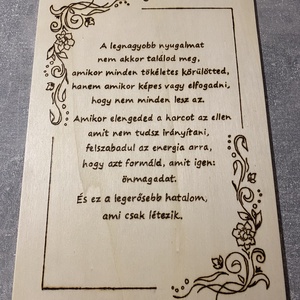 A legnagyobb nyugalmat
nem akkor találod meg,
amikor minden tökéletes körülötted,
hanem amikor képes vagy elfogadni,
hogy nem minden lesz az.
Amikor elengeded a harcot az ellen
amit nem tudsz irányítani,
felszabadul az energia arra,
hogy azt formáld, amit igen:
önmagadat.
És ez a legerősebb hatalom,
ami csak létezik.